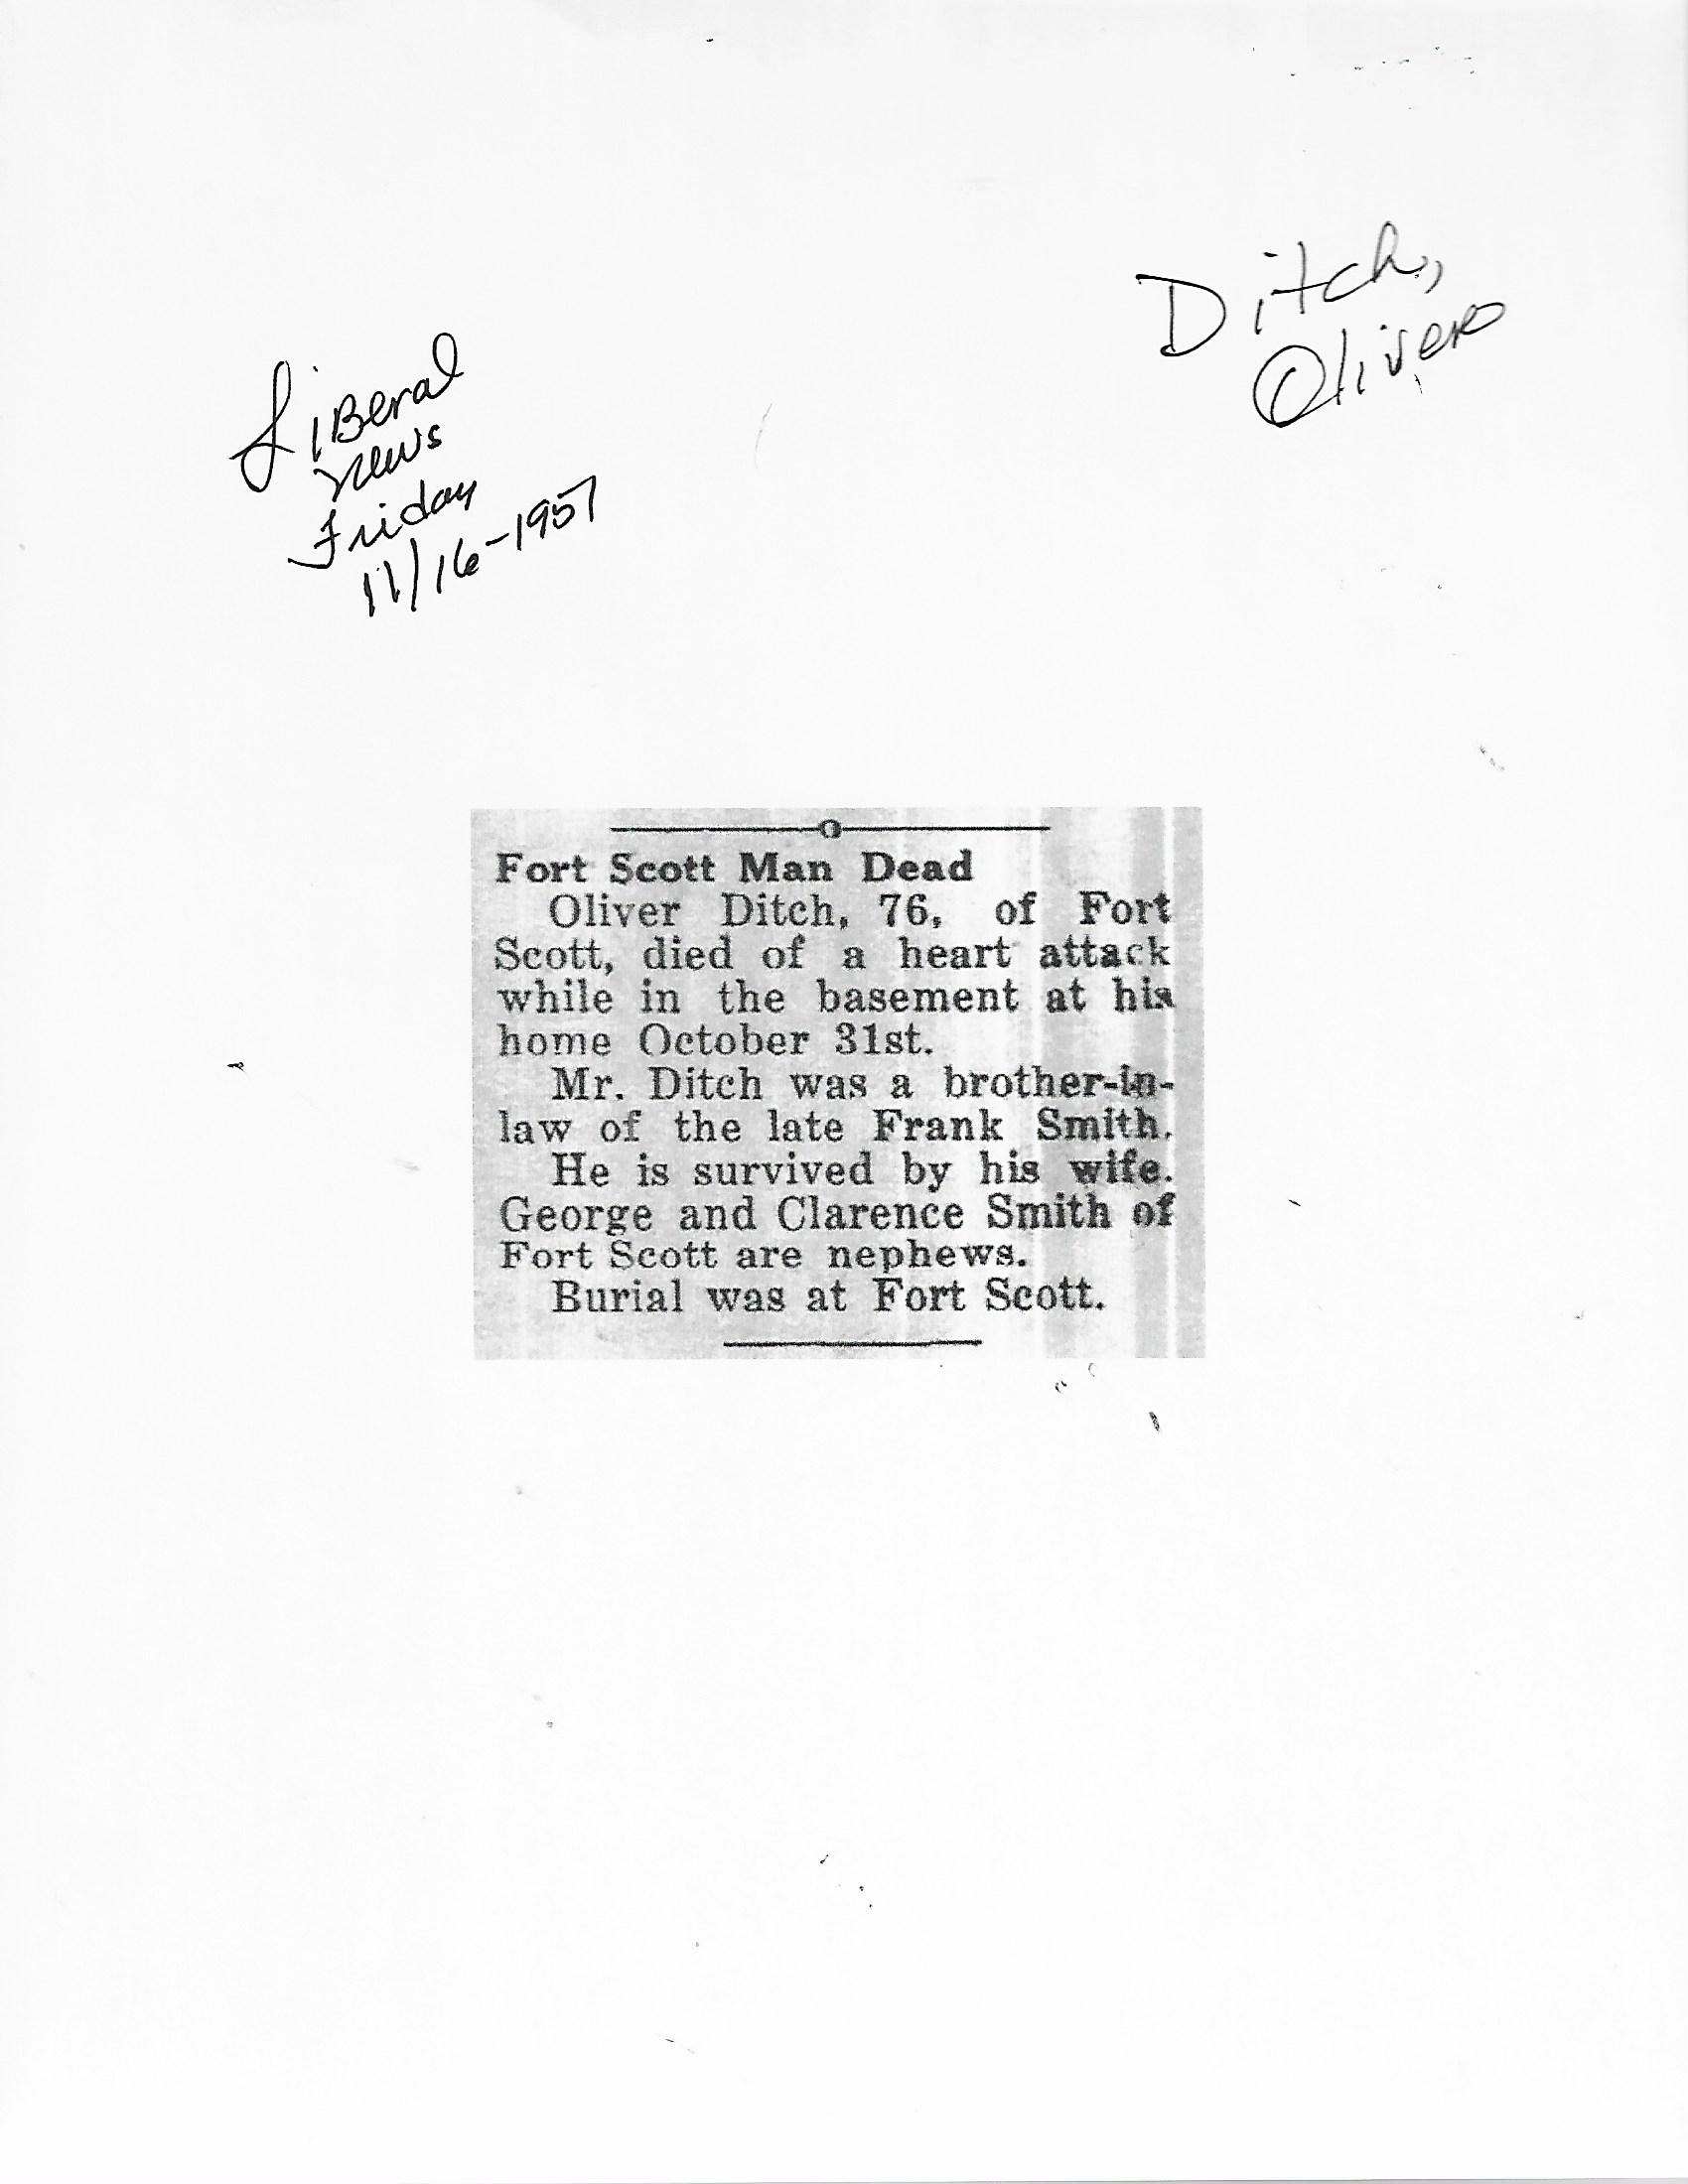 Ditch,
Oliver
Liberal
News
Friday
11/16-1957
Fort Scott Man Dead
Oliver Ditch, 76, of Fort
Scott, died of a heart attack
while in the basement at his
home October 31st.
Mr. Ditch was a brother-in-
law of the late Frank Smith.
He is survived by his wife.
George and Clarence Smith of
Fort Scott are nephews.
Burial was at Fort Scott.